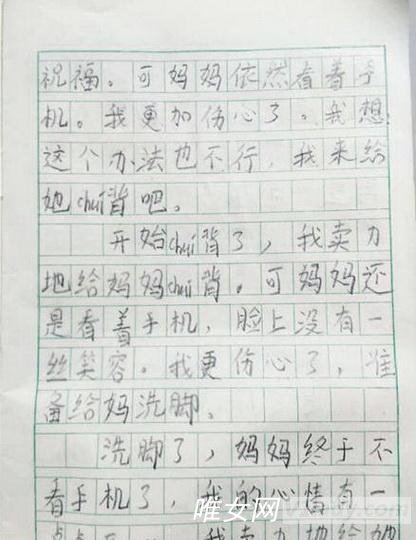 祝福。可妈妈依然看着手
机。我更加伤心了。我想
这个办法也不行，我来给
她chuí背吧。
开始chuí背了，我卖力
地给妈妈chuí背。可妈妈还
是看着手机，脸上没有一
丝笑容。我更伤心了，准
备给妈洗脚。
洗脚了，妈妈终于不
看手机了，我的心情有一
我卖力地给她
唯女网